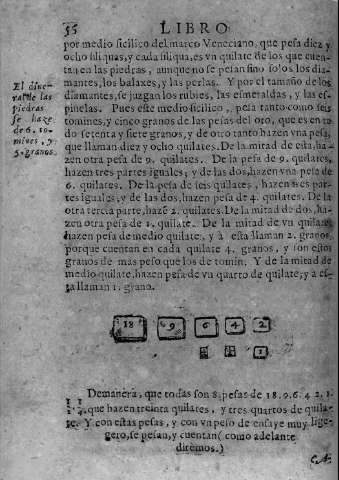 55 LIBRO
por medio sicilico del marco Veneciano, que pesa diez y
ocho siliquas, y cada siliqua, es vn quilate de los que cuen-
tan en las piedras, aunque no se pesan sino solos los dia-
mantes, los balaxes, y las perlas. Y por el tamaño de los
diamantes, se juzgan los rubis, las esmeraldas, y las es-
pinelas. Pues este medio sicilico, pesa tanto como seis
tomines, y cinco granos de las pesas del oro, que es en to
do setenta y siete granos, y de otro tanto hazen vna pesa,
que llaman diez y ocho quilates. De la mitad de esta, ha-
zen otra pesa de 9. quilates. De la pesa de 9. quilates,
hazen tres partes iguales, y de las dos, hazen vna pesa de
6. quilates. De la pesa de seis quilates, hazen tres par-
tes iguales, y de las dos, hazen pesa de 4. quilates. De la
otra tercia parte, hazē 2. quilates. De la mitad de dos, ha-
zen otra pesa de 1. quilate. De la mitad de vn quilate
hazen pesa de medio quilate, y a esta llaman 2. granos,
porque cuentan en cada quilate 4. granos, y son estos
granos de mas peso que los de tomin. Y de la mitad de
medio quilate, hazen pesa de vn quarto de quilate, y a es-
ta llaman 1. grano.
El dine-
ral de las
piedras
se haze
de 6. to-
mines, y
5. granos.
18 9 6 4 2
1
Demanera, que todas son 8. pesas de 18. 9. 6. 4. 2. 1.
que hazen treinta quilates, y tres quartos de quila-
te. Y con estas pesas, y con vn peso de ensaye muy lige-
gero, se pesan, y cuentan (como adelante
diremos.)